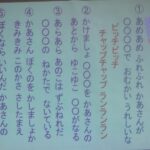 ① あめあめ ふれふれ かあさんが
〇〇〇で おむかい うれしいな
ピッチピッチ
チャップチャップ ランランラン
② かけましょ 〇〇〇を かあさんの
あとから ゆこゆこ 〇〇がなる
③ あらあら あのこは ずぶぬれだ
〇〇〇の ねかたで ないている
④ かあさん ぼくのを かしましょか
きみきみ このかさ さしたまえ
⑤ ぼくならいいんだ かあさんの